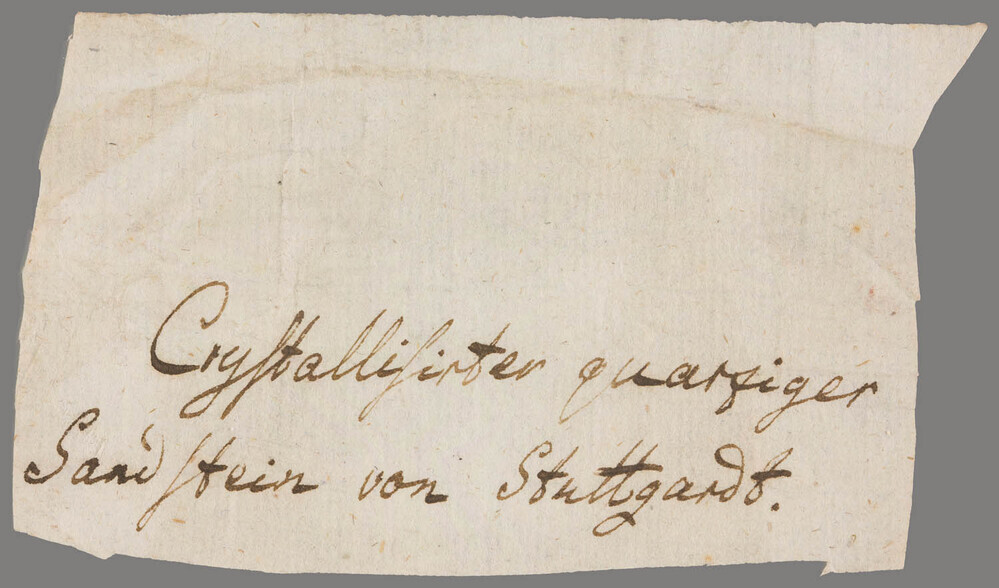 Crystallisirter quarziger
Sandstein von Stuttgardt.